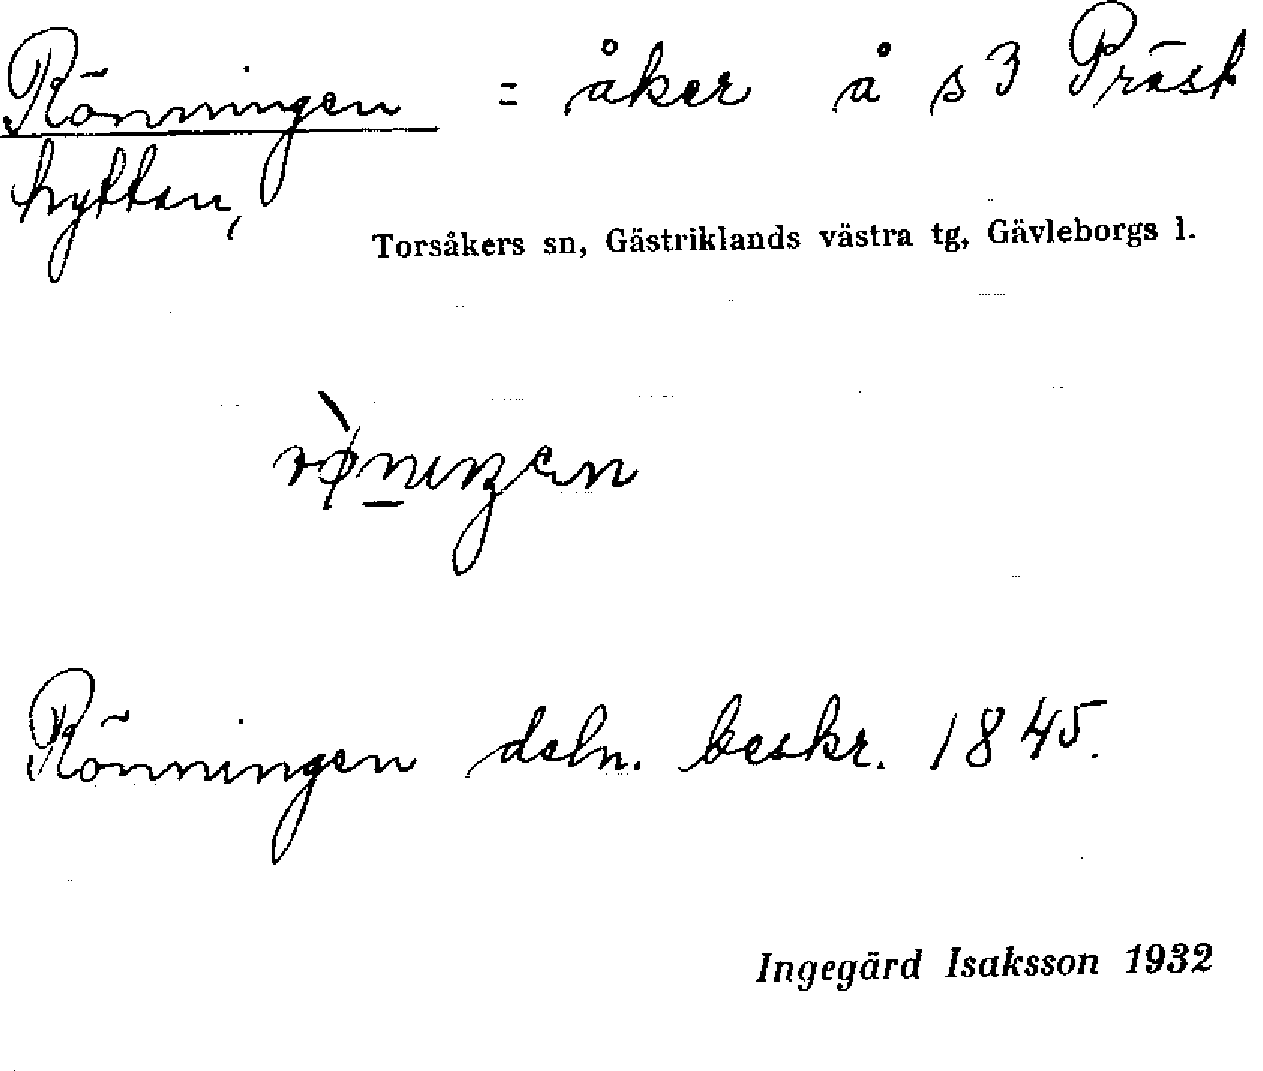 Rönningen = åker å s 3 Präst
hyttan,
Torsåkers sn, Gästriklands västra tg, Gävleborgs l.
Rönningen deln. beskr. 1845.
Ingegärd Isaksson 1932